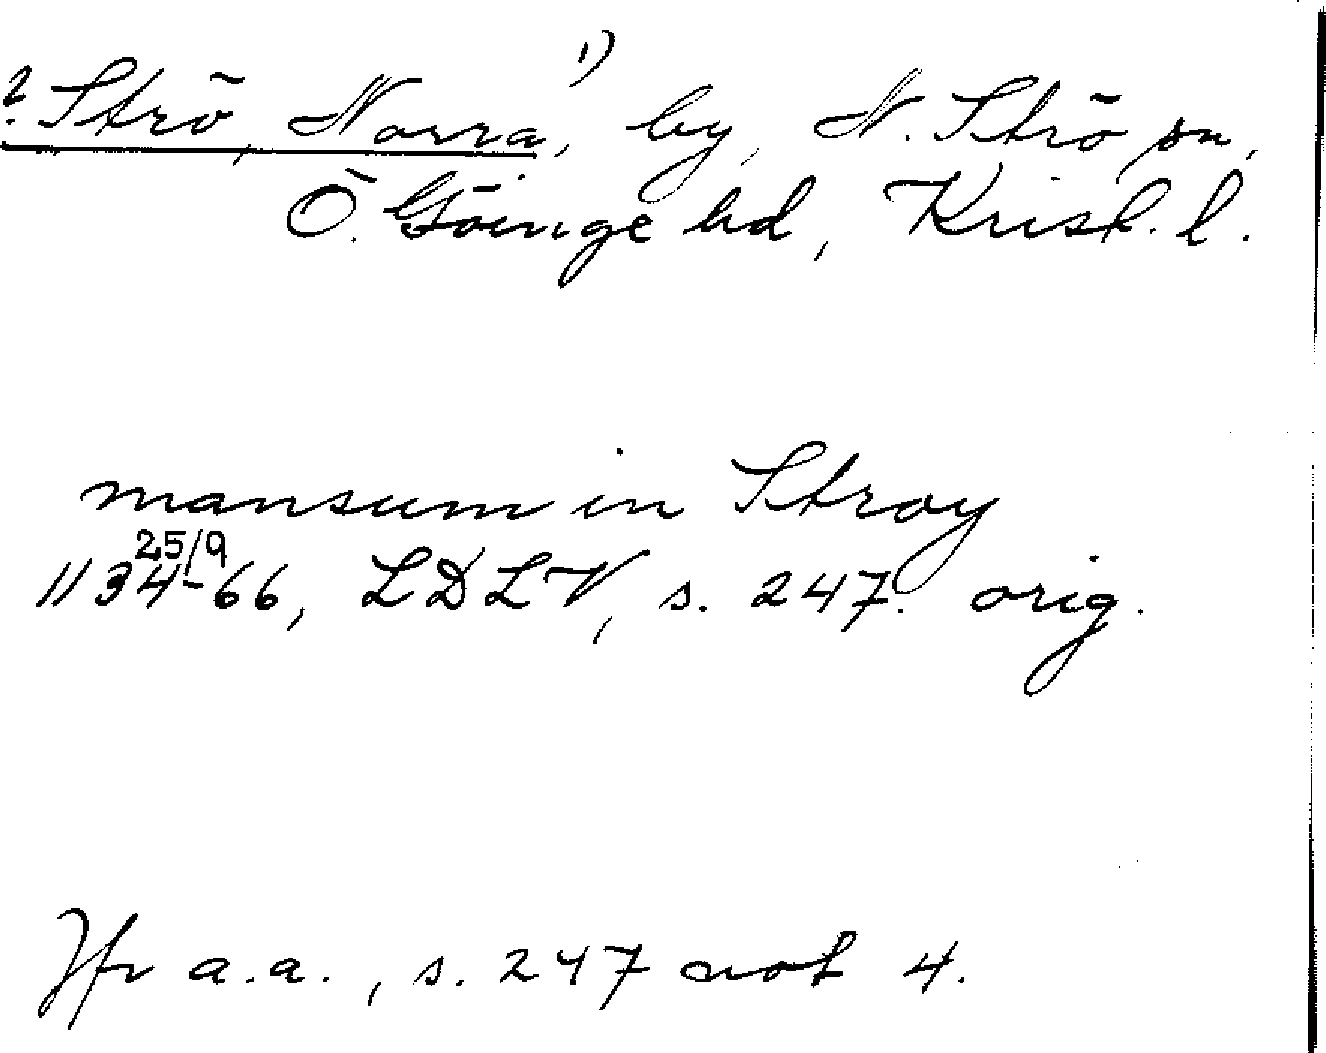 1)
? Strö, Norra, by, N. Strö sn,
Ö. Göinge hd, Krist. l.
mansum in Stroy
25/9
1134-66, LDLV, s. 247. orig.
Jfr a.a., s. 247 not 4.